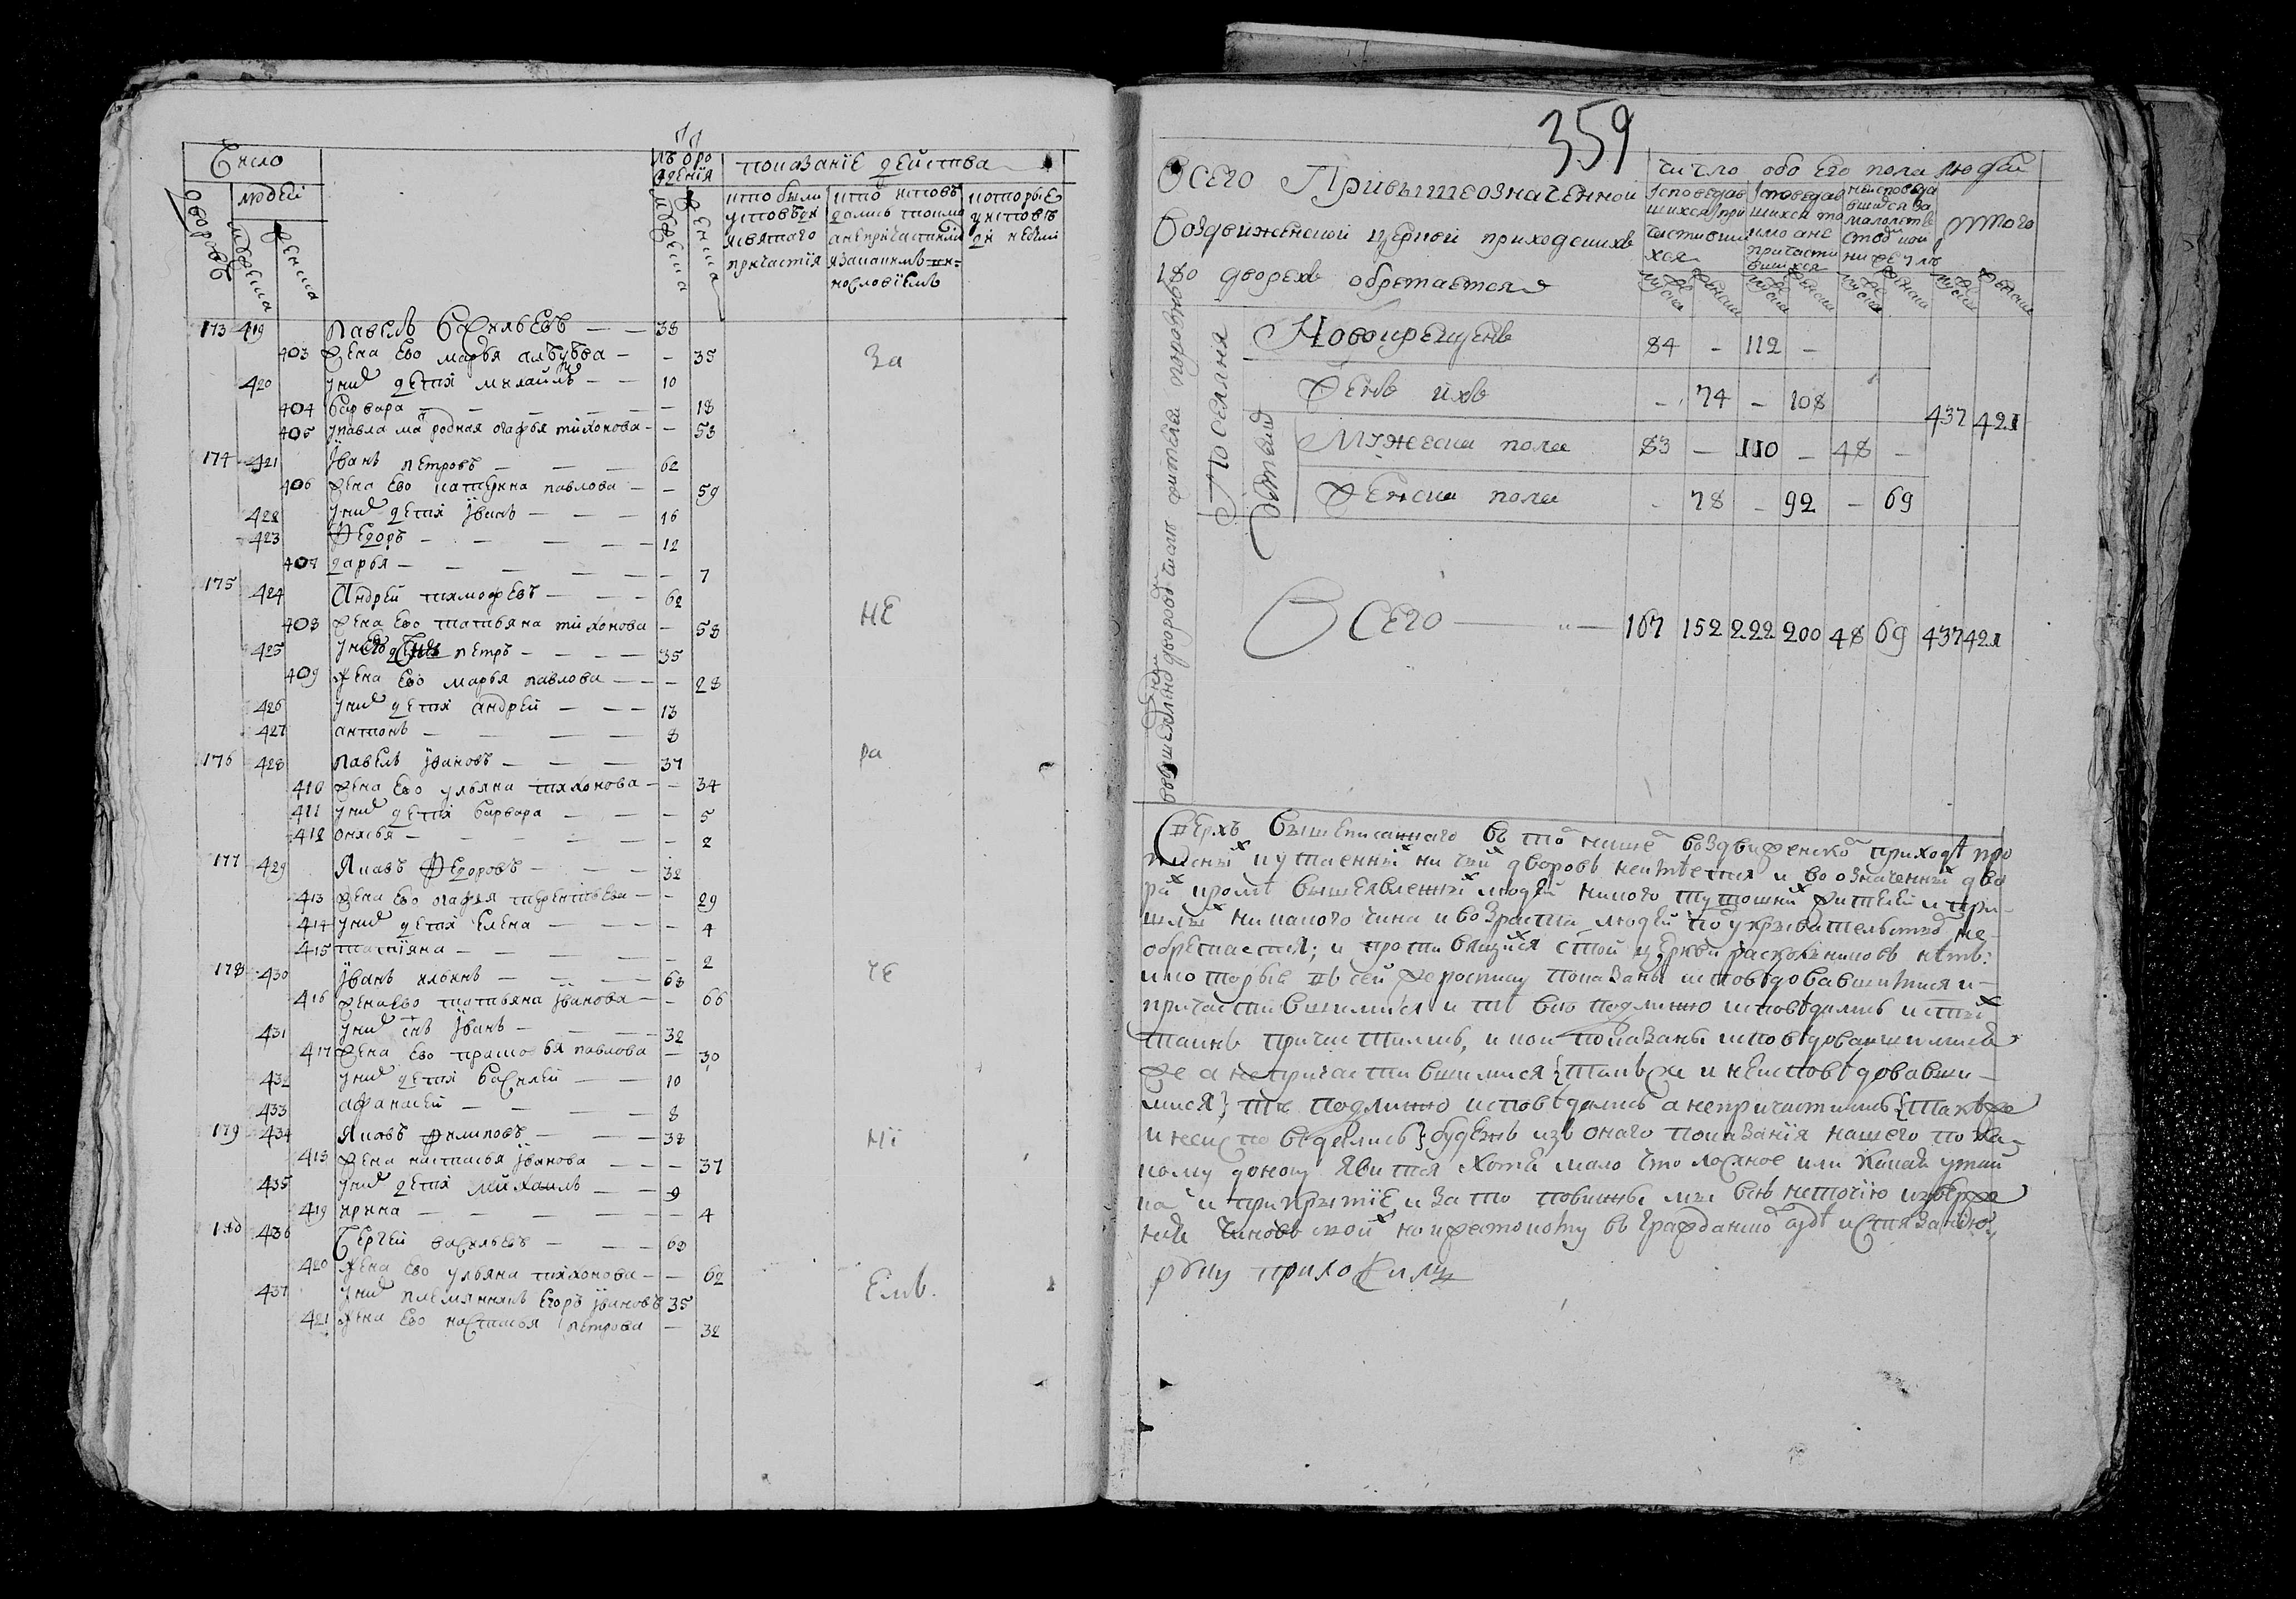 Число
дворовъ
людей
мужеска
женска
лѣ оро
ждения
мужеска
женска
показанїе действа
кто были
у исповѣди
и святаго
причастия
кто исповѣ
дались токмо
а не причастили
ся за какимъ ви-
нословїемъ
которые
у исповѣ
ди не были
173 419 Павелъ Васильевъ — — 38
403 жена ево марья — — 35
420 у них дети михайлъ — — 10
404 варвара — — 18
405 у павла ма родная огафья тихонова — — 53
174 421 Иванъ петровъ — — 62
406 жена ево катерина павлова — — 59
422 у них дети иванъ — — 16
423 Федоръ — — 12
407 дарья — — 7
175 424 Андрей тимофеевъ — — 62
408 жена ево татьяна тихонова — 58
425 петръ — — 35
409 жена ево марья павлова — — 28
426 у них дети андрей — — 13
427 антонъ — — 8
176 428 павелъ ивановъ — — 37
410 жена ево ульяна тихонова — — 34
411 у них дети варвара — — 5
412 онисья — — 2
177 429 Яковъ Федоровъ — — 32
413 жена ево огафья терентьева — — 29
414 у них дети елена — — 4
415 татияна — — 2
178 430 иванъ — — 68
416 жена ево татьяна иванова — — 66
431 у них снъ иванъ — — 32
417 жена ево прасковья павлова — 30
432 у них дети василей — — 10
433 афанасей — — 8
179 434 Яковъ филиповъ — — 38
418 жена настасья иванова — — 37
435 у них дети михаилъ — — 9
419 ирина — — 4
180 436 Сергей васильевъ — — 60
420 жена ево ульяна тихонова — — 62
437 у них племянникъ егоръ ивановъ 35
421 жена ево настасья петрова — 32
За
не
ра
че
нї
емъ.
359
Всего При вышеозначенной
Воздвиженской церкви приходскихъ
180 дворехъ обретается
число обоего пола людей
исповедав
шихся и при
частивши
хся
исповедав
шихся то
кмо а не
причасти
вшихся
неисповеда
вшихся за
малолетс
итого
мужска женска мужска женска мужска женска мужска женска
Поселяня
Новокрещенъ 84 - 112 -
Женъ ихъ - 74 - 108
437 421
Детей
Мужеска пола 83 — 110 — 48 —
Женска пола - 78 - 92 — 69
Всего — 167 152 222 200 48 69 437 421
Сверхъ вышеписаннаго въ то нашей воздвиженской приходѣ про
писных и утаенных ни чьих дворовъ неимѣется и во означенных дво
рах кромѣ вышеявленных людей никого тутошних жителей и при-
шлых никакого чина и возраста людей по укрывательству не
обретается; и противящихся стой церкви расколниковъ нѣтъ:
и которые въ сей же росписи показаны исповѣдовавшимися и
причастившимися и тѣ все подлинно исповѣдались и стых
таинъ причастились, и кои показаны исповѣдовавшимися
же а не причастившимися {такъ же и неисповѣдовавши-
мися} те подлинно исповѣдались а не причастились {такъ же
и неисповѣдались} будежъ изъ онаго показания нашего по ка-
кому доносу явится хотя мало что ложное или какая утай
ка и прикрытие и за то повинны мы все нетокмо извержени
чиновъ своих но и жестокому въ гражданско судѣ истязанию
руку приложилъ